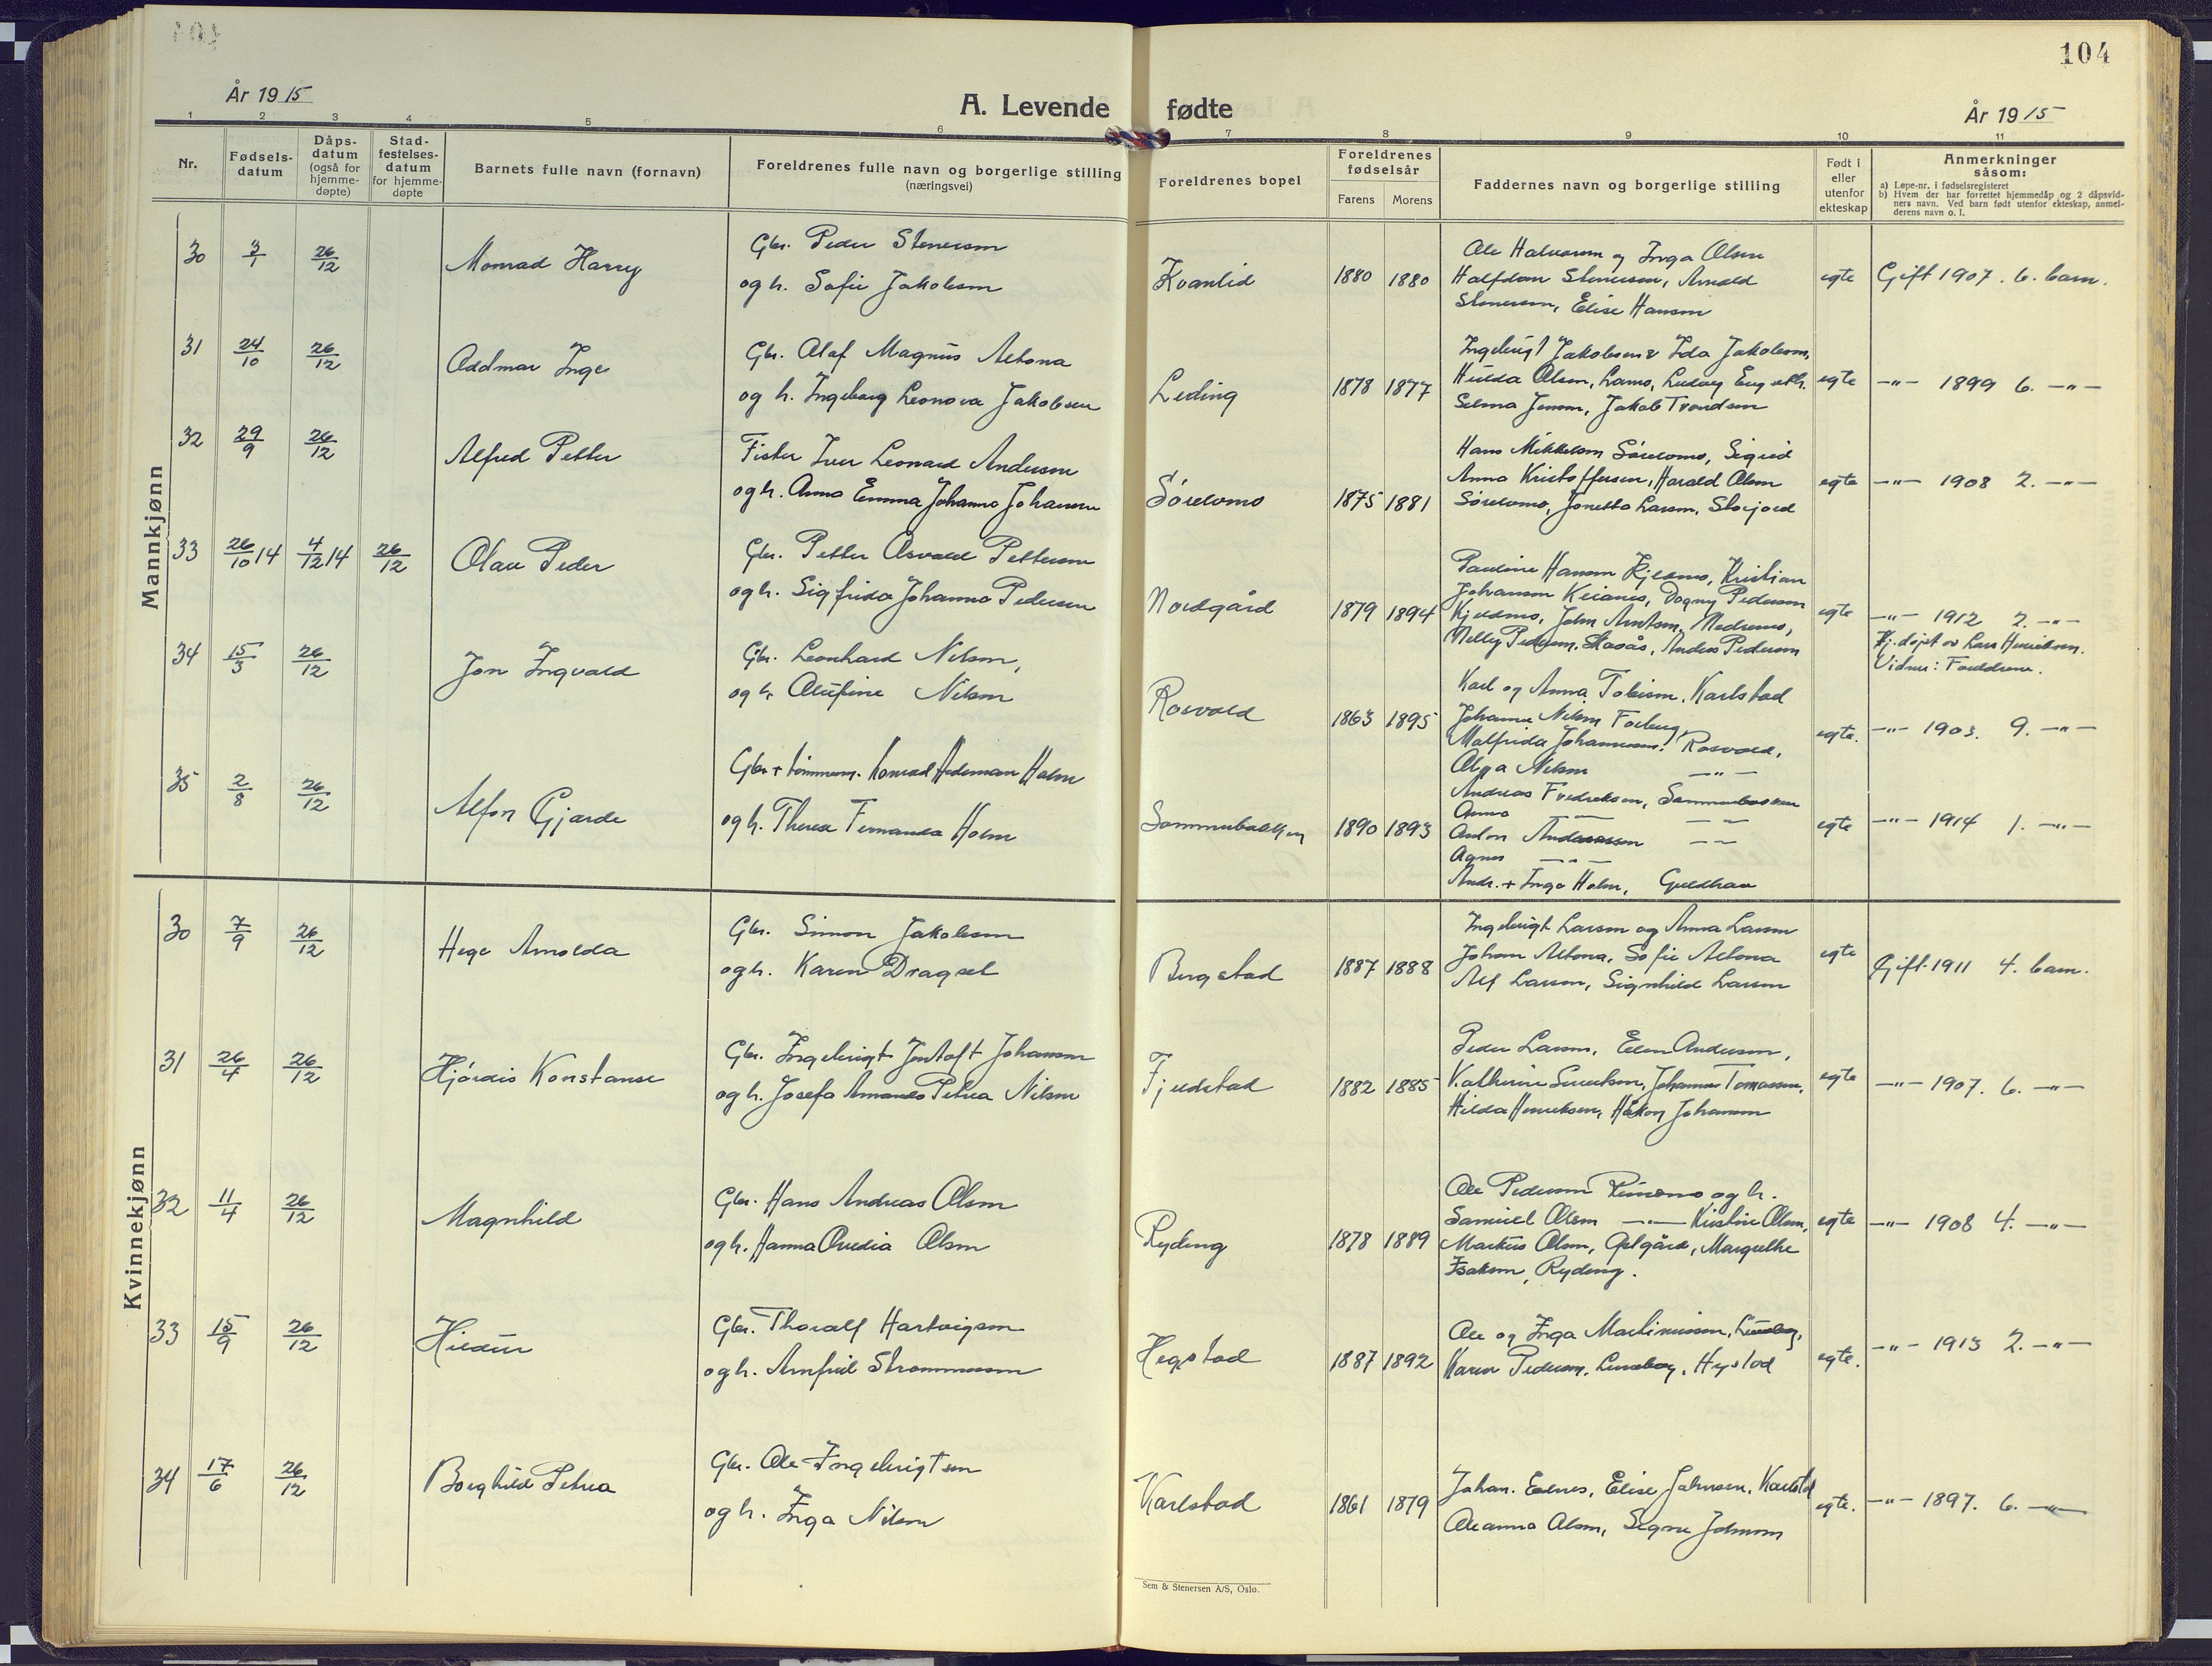 104
År 1915
A. Levende fødte
År 1915
1 2 3 4 5 6 7 8 9 10 11
Nr.
Fødsels-
datum
Dåps-
datum
(også for
hjemme-
døpte)
Stad-
festelses-
datum
for hjemme-
døpte
Barnets fulle navn (fornavn)
Foreldrenes fulle navn og borgerlige stilling
(næringsvei)
Foreldrenes bopel
Foreldrenes
fødselsår
Farens Morens
Faddernes navn og borgerlige stilling
Født i
eller
utenfor
ekteskap
Anmerkninger
såsom:
a) Løpe-nr. i fødselsregisteret
b) Hvem der har forrettet hjemmedåp og 2 dåpsvid-
ners navn. Ved barn født utenfor ekteskap, anmel-
derens navn o. l.
Mannkjønn
30 3/1 26/12 Monrad Harry
Gbr. Peder Stenersen
og h. Sofie Jakobsen
Kvantid 1880 1880
Ole Halvorsen og Inga Olsen
Halfdan Stenersen, Arnold
Stenersen, Elise Hansen
egte Gift 1907. 6. barn.
31 24/10 26/12 Oddmar Inge
Gbr. Olaf Magnus Altona
og h. Ingeborg Leonova Jakobsen
Leding 1878 1877
Ingebrigt Jakobsen & Ida Jakobsen,
Hulda Olsen, Ludvig
Selma Jensen, Jakob Trondsen
egte -"- 1899 6. -"-
32 29/9 26/12 Alfred Petter
Fisker Iver Leonard Andersen
og h. Anna Emma Johanna Johansen
Sörelvmo 1875 1881
Hans Mikkelsen Sörelvmo, Sigrid
Anna Kristoffersen, Harald Olsen
Sörelvmo, Jonetta Larsen, Storjord
egte -"- 1908 2. -"-
33 26/10 14 4/12 14 26/12 Olav Peder
Gbr. Petter Osvald Pettersen
og h. Sigfrida Johanna Pedersen
Nordgård 1879 1894
Pauline Hansen Kjelmo, Kristian
Johansen Dagny Pedersen
John Arntsen, Nedremo,
Nelly Pedersen, Anders Pedersen
egte -"- 1912 2. -"-
Hj. døpt av Lars Henriksen.
Vidner: Foreldrene.
34 15/3 26/12 Jon Ingvald
Gbr. Leonhard Nilsen,
og h. Olufine Nilsen
Rosvold 1863 1895
Karl og Anna Tobisen, Karlstad
Johanna Nilsen Forberg,
Malfrida Johannesen, Rosvold,
Olga Nilsen -"-
egte. -"- 1903. 9. -"-
35 2/8 26/12 Alfon Gjærde
Gbr + tömmerm. Konrad Hedeman Holm
og h. Therese Fernanda Holm
Sommerbakken 1890 1893
Andreas Fredriksen, Sommerbakken
Anna -"- -"-
Anton Andreassen -"-
Agnes -"-
Andr. + Inga Holm, Guldhav
egte -"- 1914 1. -"-
Kvinnekjønn
30 7/9 26/12 Hege Arnolda
Gbr. Simon Jakobsen
og h. Karen Dragsel
Bergstad 1887 1888
Ingebrigt Larsen og Anna Larsen
Johan Altona, Sofie Altona
Alf Larsen, Signhild Larsen
egte Gift 1911 4. barn.
31 26/4 26/12 Hjördis Konstanse
Gbr. Ingebrigt Jentoft Johansen
og h. Josefa Amanda Petrea Nilsen
Fjeldstad 1882 1885
Peder Larsen, Ellen Andersen,
Kathrine Johannes Tomassen,
Hilda Henriksen, Håkon Johansen
egte -"- 1907. 6. -"-
32 11/4 26/12 Magnhild
Gbr. Hans Andreas Olsen
og h. Hanna Ovedia Olsen
Ryding 1878 1889
Ole Pedersen og h.
Samuel Olsen -"- Kristine Olsen,
Markus Olsen, Margrethe
Isaksen, Ryding.
egte -"- 1908 4. -"-
33 15/9 26/12 Hildur
Gbr. Thoralf Hartvigsen
og h. Arnfrid Strømmesen
Hegstad 1887 1892
Ole og Inga Martinussen, Lundberg,
Karen Pedersen, Lundberg, Hegstad
egte. -"- 1913 2. -"-
34 17/6 26/12 Borghild Petrea
Gbr. Ole Ingebrigtsen
og h. Inga Nilsen
Karlstad 1861 1879
Johan. Elise Johnsen, Karlstd
Oleanna Olsen, Signe Johnsen
egte. -"- 1897. 6. -"-
Sem & Stenersen A/S, Oslo.